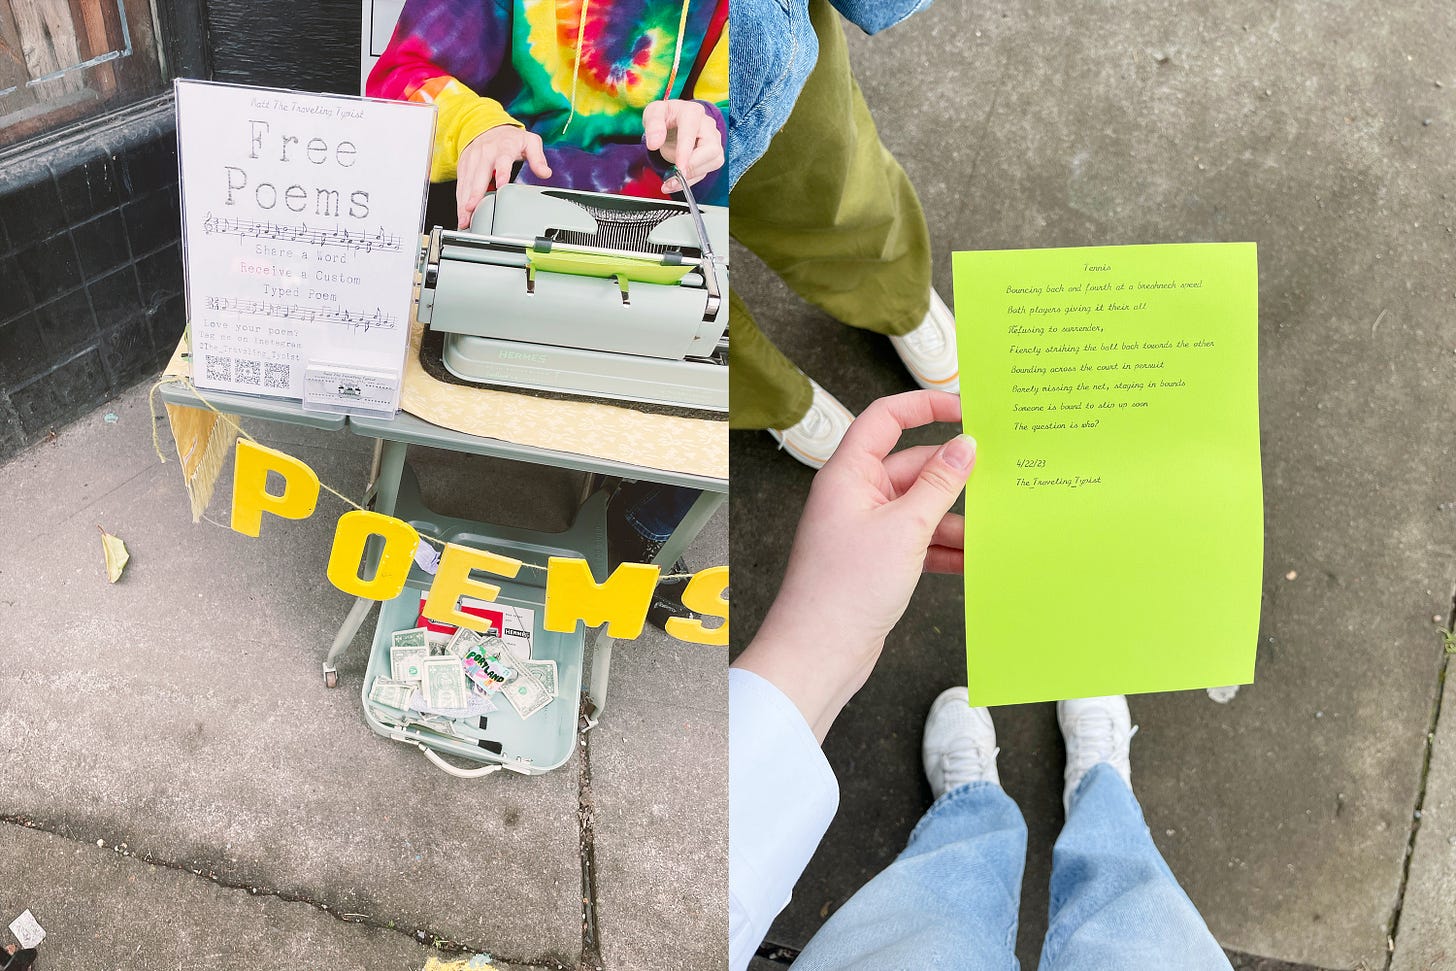 Matt The Traveling Typist
Free
Poems
Share a Word
Receive a Custom
Typed Poem
Love your poem?
Tag me on Instagram
@The_Traveling_Typist
HERMES
POEMS
HERMES
PORTLAND
Tennis
Bouncing back and fourth at a breakneck speed
Both players giving it their all
Refusing to surrender,
Fiercly striking the ball back towards the other
Bounding across the court in persuit
Barely missing the net, staying in bounds
Someone is bound to slip up soon
The question is who?
4/22/23
The_Traveling_Typist